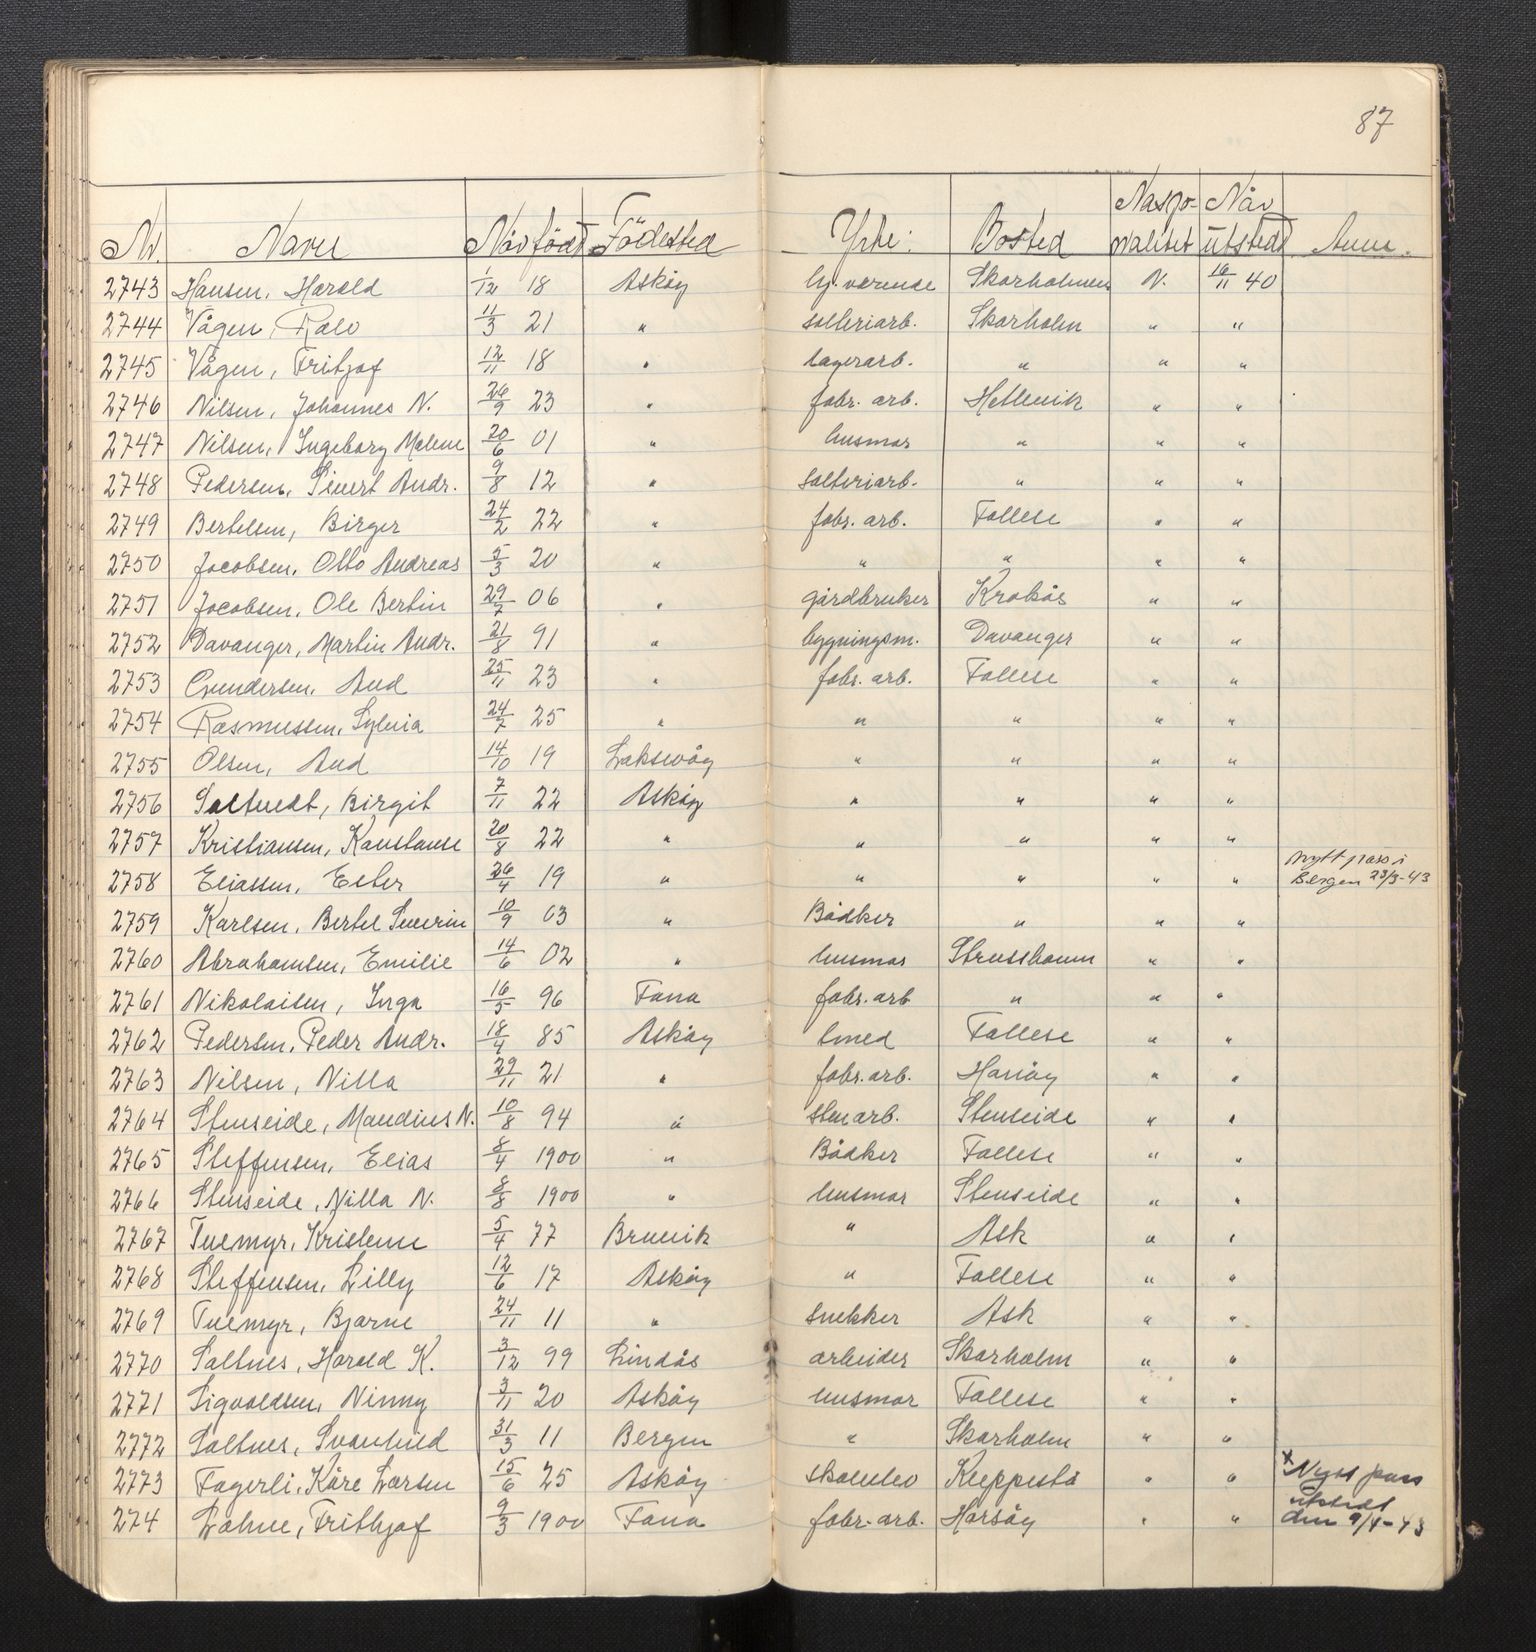 87
Nr. Navn Når född Födested Yrke: Bosted Nasjo-nalitet Når utstedt Anm.
2743 Hansen, Harald 1/12 18 Askøy hj. værende Skarholmen N. 16/11 40
2744 Vågen, Rolv 11/3 21 " salteriarb. Skarholm " "
2745 Vågen, Fritjof 12/11 18 " lagerarb. " " "
2746 Nilsen, Johannes N. 26/9 23 " fabr. arb. Hetlevik " "
2747 Nilsen, Ingeborg Malene 20/6 01 " husmor " " "
2748 Pedersen, Sivert Andr. 9/8 12 " salteriarb. " " "
2749 Bertelsen, Birger 24/2 22 " fabr. arb. Follese " "
2750 Jacobsen, Otto Andreas 5/3 20 " " " " "
2751 Jacobsen, Ole Bertin 29/7 06 " gårdbruker Krokås " "
2752 Davanger, Martin Andr. 21/8 91 " bygningsm. Davanger " "
2753 Gundersen, Aud 25/11 23 " fabr. arb. Follese " "
2754 Rasmussen, Sylvia 24/7 25 " " " " "
2755 Olsen, Aud 14/10 19 Laksevåg " " " "
2756 Saltvedt, Birgit 7/11 22 Askøy " " " "
2757 Kristiansen, Konstanse 20/8 22 " " " " "
2758 Eliassen, Ester 26/4 19 " " " " " Nytt pass i Bergen 23/3-43
2759 Karlsen, Bertel Severin 10/9 03 " Bødker " " "
2760 Abrahamsen, Emilie 14/6 02 " husmor Strusshamn " "
2761 Nikolaisen, Inga 16/5 96 Fana fabr. arb " " "
2762 Pedersen, Peder Andr. 18/4 85 Askøy smed Follese " "
2763 Nilsen, Nilla 29/11 21 " fabr. arb. Hanøy " "
2764 Stenseide, Mandius N. 10/8 94 " stenarb. Stenseide " "
2765 Steffensen, Elias 8/4 1900 " Bødker Follese " "
2766 Stenseide, Nilla N. 8/8 1900 " husmor Stenseide " "
2767 Tuemyr, Kristense 5/4 77 Bruvik " Ask " "
2768 Steffensen, Lilly 12/6 17 Askøy " Follese " "
2769 Tuemyr, Bjarne 24/11 11 " snekker Ask " "
2770 Saltnes, Harald K. 3/12 99 Lindås arbeider Skarholm " "
2771 Sigvaldsen, Ninny 3/11 20 Askøy husmor Follese " "
2772 Saltnes, Svanhild 31/3 11 Bergen " Skarholm " "
2773 Fagerli, Kåre Larsen 15/6 25 Askøy skoleelev Kleppestø " " x Nytt pass
274 Lahne, Frithjof 9/3 1900 Fana fabr. arb. Horsøy " " utstedt den 9/4-43